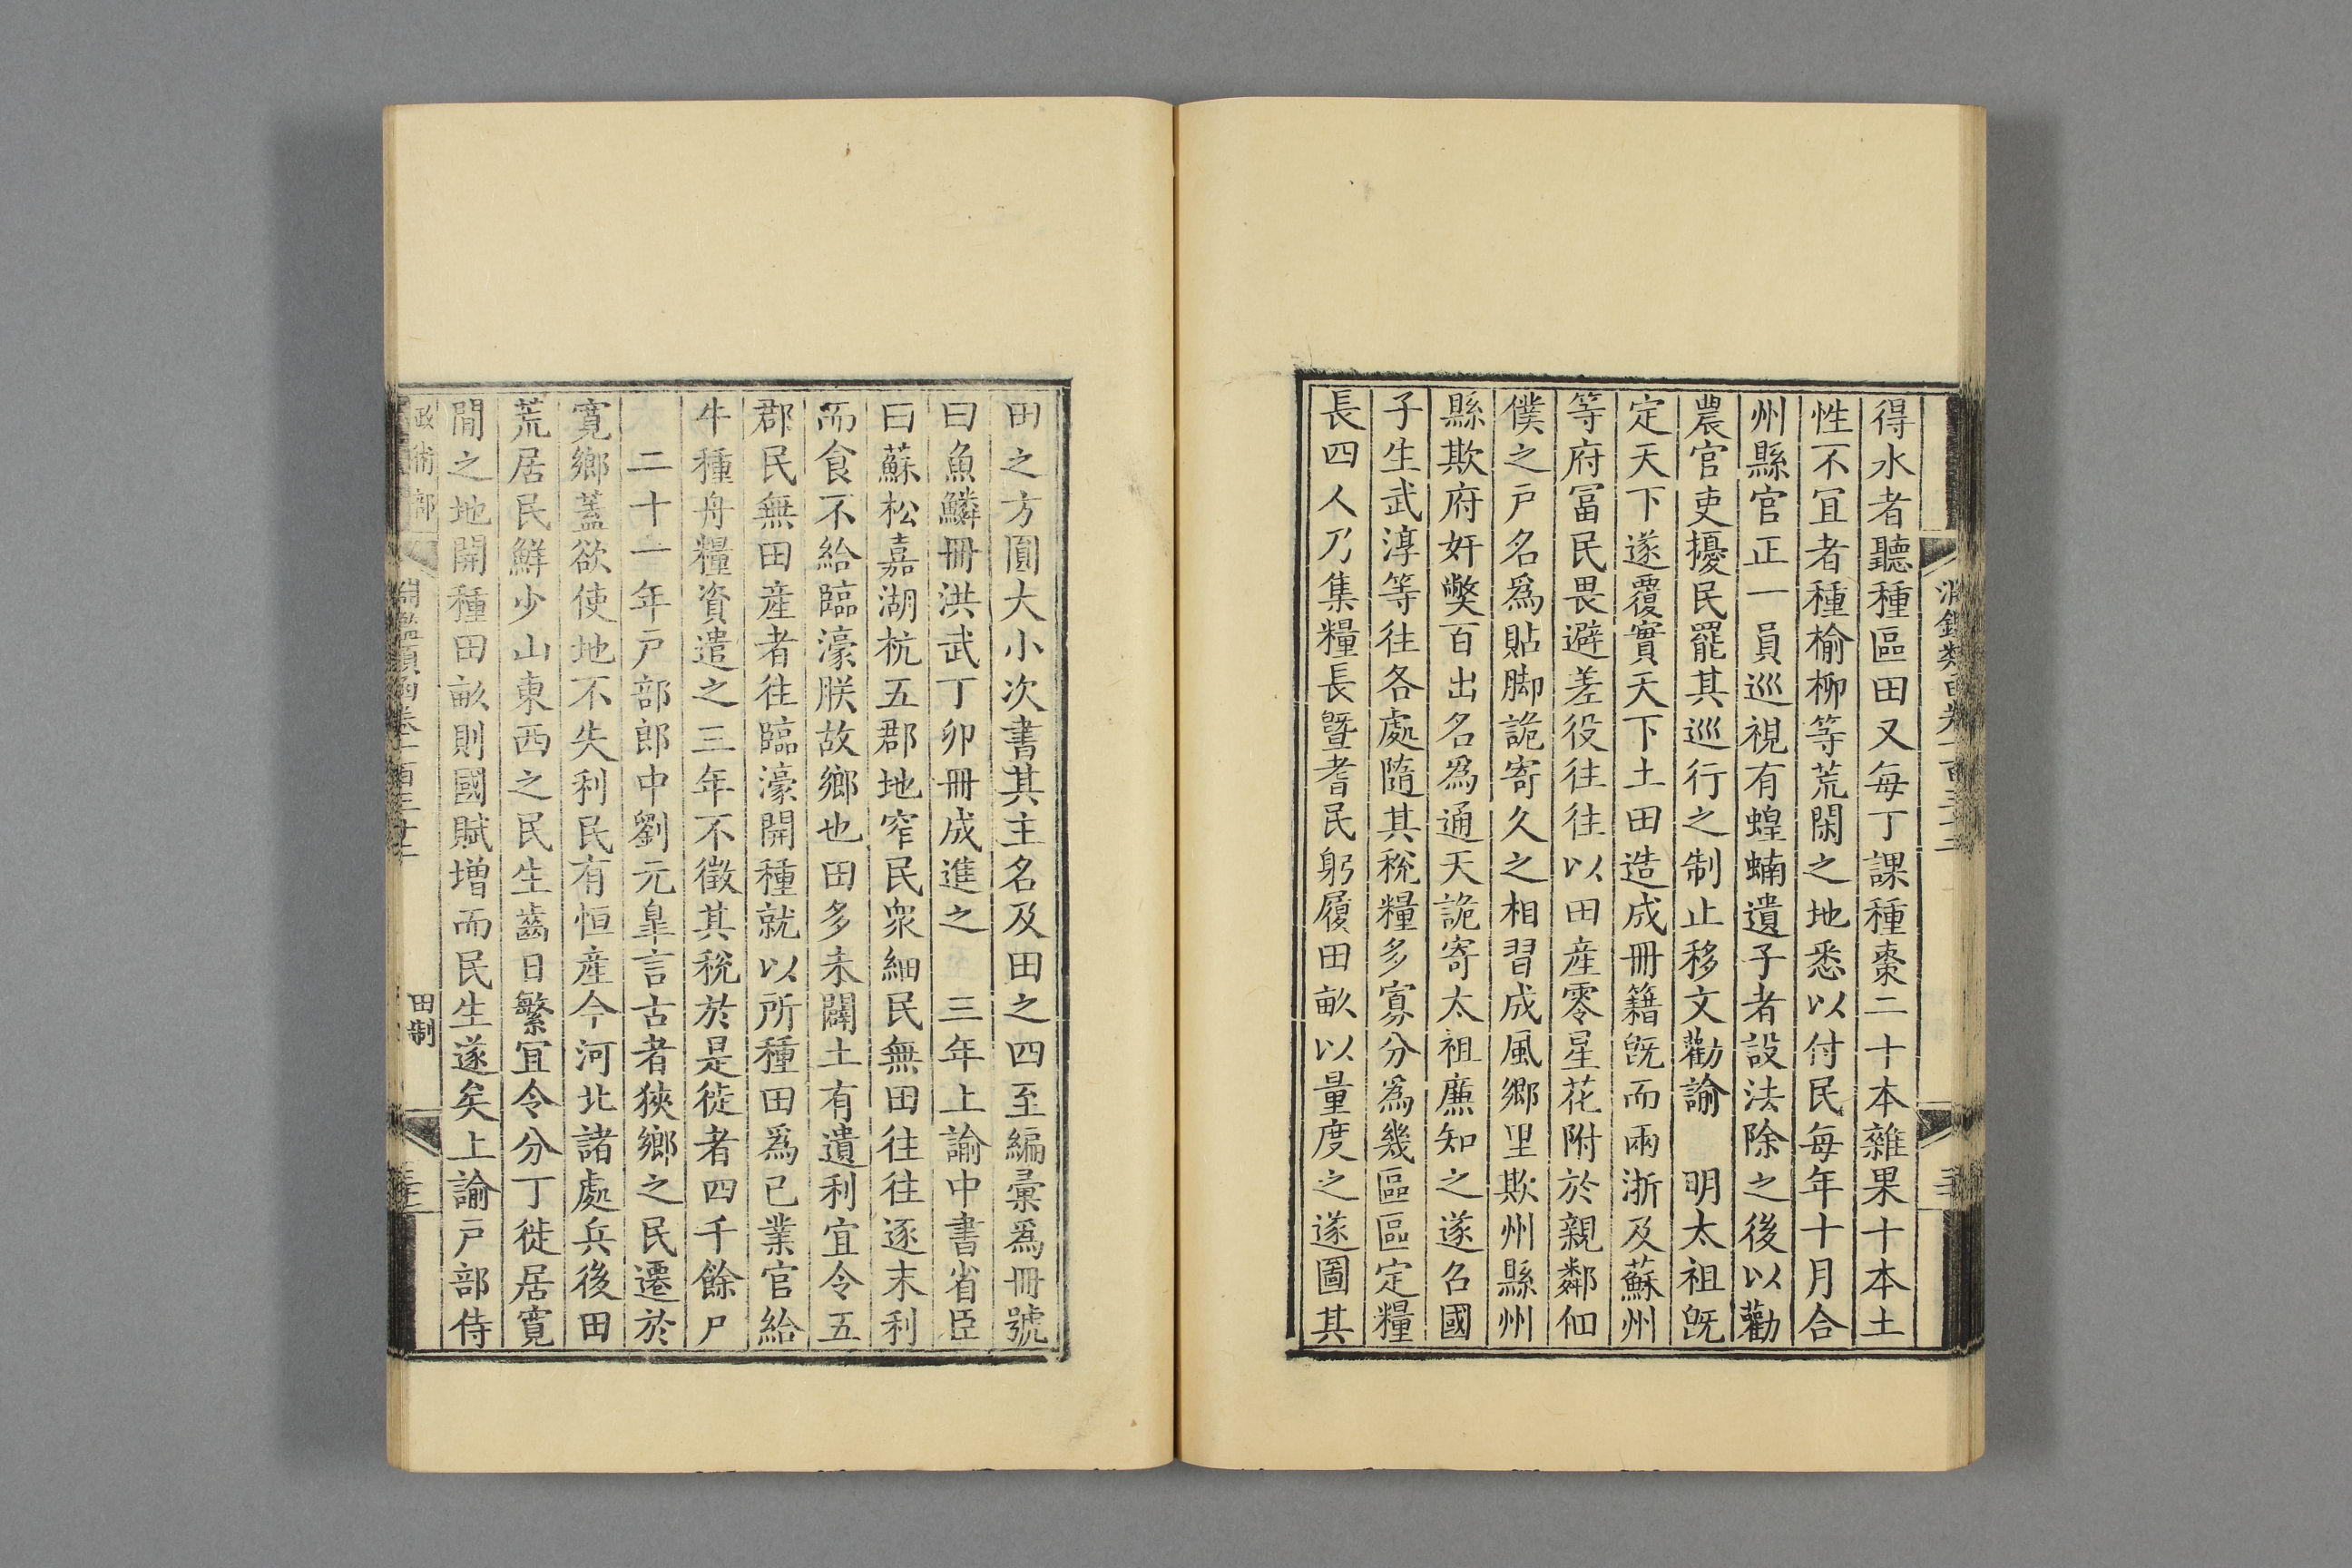 得水者聽種區田又每丁課種棗二十本雜果十本土
性不宜者種榆柳等荒閑之地悉以付民每年十月合
州縣官正一員巡視有蝗蝻遺子者設法除之後以勸
農官吏擾民罷其巡行之制止移文勸諭　明太祖旣
定天下遂覆實天下土田造成冊籍旣而兩浙及蘇州
等府冨民畏避差役往往以田產零星花附於親鄰佃
僕之戶名爲貼脚詭寄久之相習成風鄉里欺州縣州
縣欺府奸獘百出名爲通天詭寄太祖廉知之遂召國
子生武淳等往各處隨其稅糧多寡分爲幾區區定糧
長四人乃集糧長曁耆民躬履田畝以量度之遂圖其
田之方圓大小次書其主名及田之四至編彙爲冊號
曰魚鱗冊洪武丁卯冊成進之　三年上諭中書省臣
曰蘇松嘉湖杭五郡地窄民衆細民無田往往逐末利
而食不給臨濠朕故鄉也田多未闢土有遺利宜令五
郡民無田產者往臨濠開種就以所種田爲已業官給
牛種舟糧資遣之三年不徵其稅於是徙者四千餘戶
二十一年戶部郎中劉元臯言古者狹鄉之民遷於
寬鄉蓋欲使地不失利民有恒產今河北諸處兵後田
荒居民鮮少山東西之民生齒日繁宜令分丁徙居寬
閒之地開種田畝則國賦增而民生遂矣上諭戶部侍
政術部
淵鑑類函卷一百三十三
田制